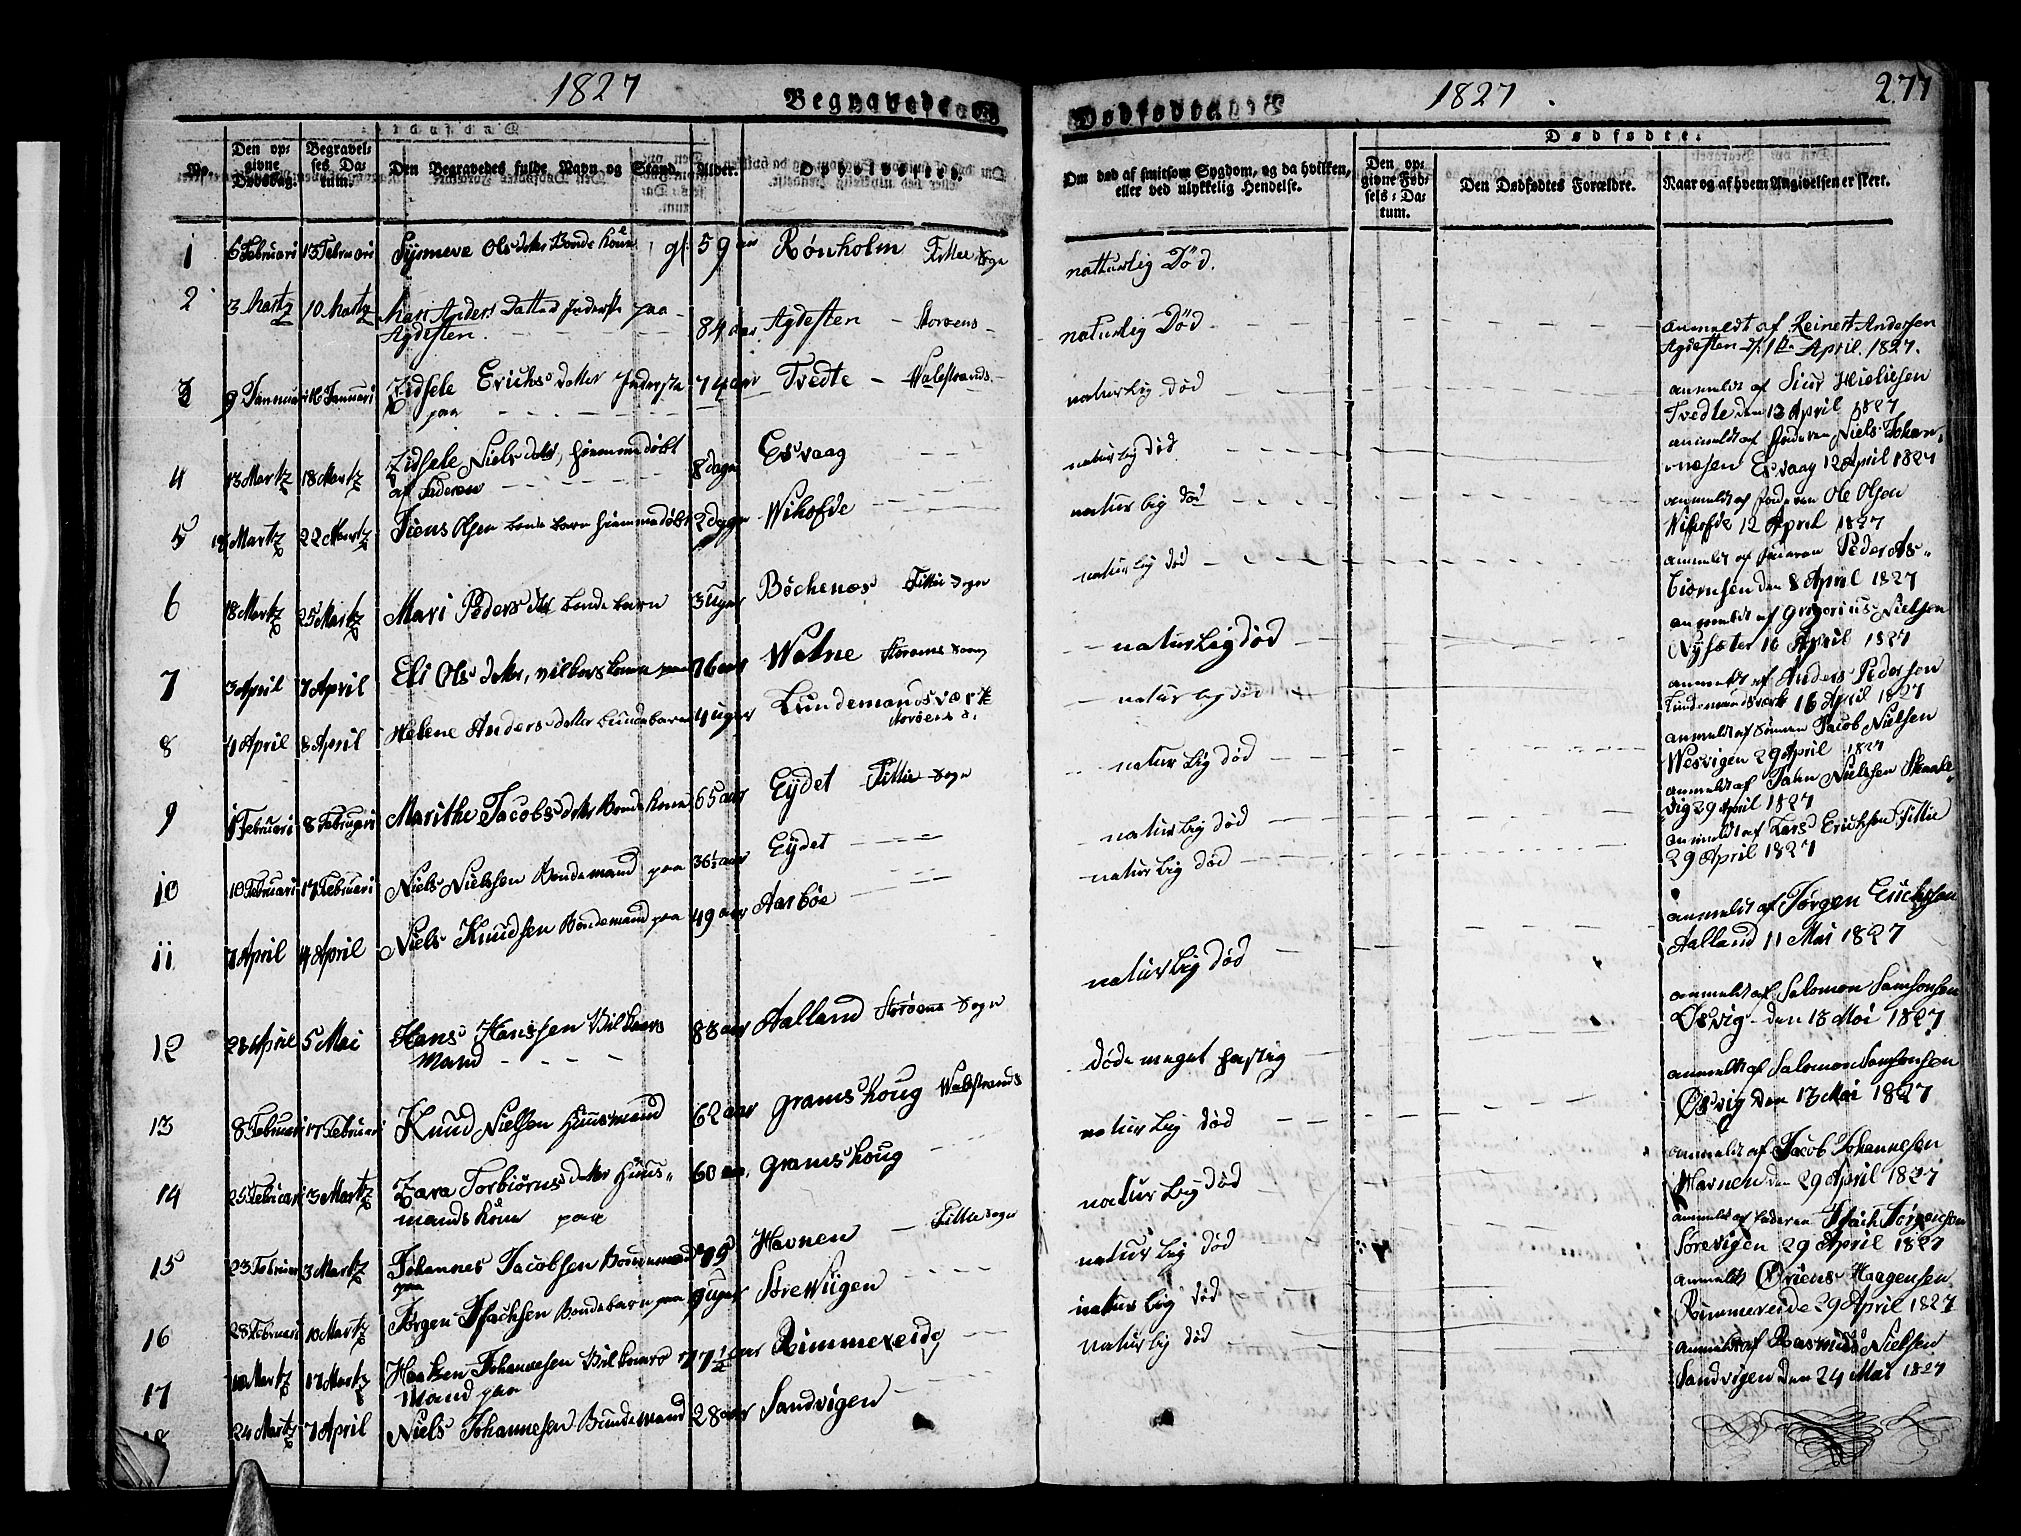 1827 Begravede
No. Den opgivne Dødsdag. Begravelses Datum. Den Begravedes fulde Navn og Stand. Alder. Opholdssted.
1 6 Februari 13 Februari Synneve Olsdatter Bonde kone gl. 59 aar Rønholm Fittie Sogn
2 3 Martz 10 Martz Mari Anders Datter Inderste paa
Agdesten. 84 aar Agdesten Storøens
3 9 Januari 16 Januari Zidsele Erichsdatter Inderste
paa 74 aar Tvedte Walestrands
4 13 Martz 18 Martz Zidsele Nielsdatter, hiemmedøbt
af Faderen 8 dage Esvaag
5 18 Martz 22 Martz Jens Olsen bonde barn hiemmedøbt 2 dage Wihofde
6 18 Martz 25 Martz Mari Pedersdtr bonde barn 3 Uger Bøchenæs Fittie Sogn
7 3 April 7 April Eli Olsdatter, vilkors kone paa 76 aar Watne Storøens Sogn
8 4 April 8 April Helene Andersdatter bondebarn 4 uger Lundemandsværk
Storøens S.
9 1 Februari 8 Februari Marithe Jacobsdatter Bonde kone 65 aar Eydet Fittie Sogn
10 10 Februari 17 Februari Niels Nielssen Bondemand paa 36½ aar Eydet
11 7 April 14 April Niels Knudsen Bondemand paa 49 aar Aarbøe
12 28 April 5 Mai Hans Hanssen Vilkaars
Mand 88 aar Aalland Storøens Sogn
13 8 Februari 17 Februari Knud Nielsen Huusmand 62 aar Gramshoug Walestrands
14 25 Februari 3 Martz Zara Torbiørnsdatter Huus-
mands kone paa 60 aar. Gramshoug
15 23 Februar 3 Martz Johannes Jacobsen Bondemand
paa 79 Havnen Fittie Sogn
16 28 Februari 10 Martz Jørgen Isachsen Bondebarn paa 9 Uger Sørewiigen
17 10 Martz 17 Martz Haaken Johannesen Vilkaars
Mand paa 77½ aar Rimmereide
18 24 Martz 7 April Niels Johannesen Bondemand 28 aar Sandvigen
Dødfødde 1827 277
Om død af smitsom Sygdom, og da hvilken, eller ved ulykkelig Hendelse. Dødfødte: Den opgivne Fødsels-Datum. Den Dødfødtes Forældre. Naar og af hvem Angivelsen er skeet.
natturlig Død.
naturlig Død anmeldt af Reinert Andersen
Agdesten d. 1te April. 1827.
naturlig død anmeldt af Siur Hieliesen
Tvedte den 12 April 1827
naturlig død anmeldt af Faderen Niels Johan-
nesen Esvaag 12 April 1827
naturlig død anmeldt af Faderen Ole Olsen
Wihofde 12 April 1827
naturlig død anmeldt af Faderen Peder As-
biørnsen den 8 April 1827
naturlig død anmeldt af Gregorius Nielsen
Nysæter 16 April 1827
naturlig død anmeldt af Anders Pedersen
Lundemandsværk 16 April 1827
naturlig død anmeldt af Sønnen Jacob Nielsen
Wesvigen 29 April 1827
naturlig død anmeldt af John Nielsen Skaale-
vig 29 April 1827
naturlig død anmeldt af Lars Erichsen Fittie
29 April 1827
naturlig død anmeldt af Jørgen Erichsen
Aalland 11 Mai 1827
døde meget hastig anmeldt af Salomon Samsonsen
Øsvig den 13 Mai 1827
naturlig død anmeldt af Salomon Samsonsen
Øsvig den 13 Mai 1827
naturlig død anmeldt af Jacob Johannesen
Havnen den 29 April 1827
naturlig død anmeldt af Faderen Isach Jørgensen
Sørevigen 29 April 1827
naturlig død anmeldt Øriens Haagensen
Rimmereide 29 April 1827
naturlig død anmeldt af Rasmus Nielsen
Sandvigen den 24 Mai 1827